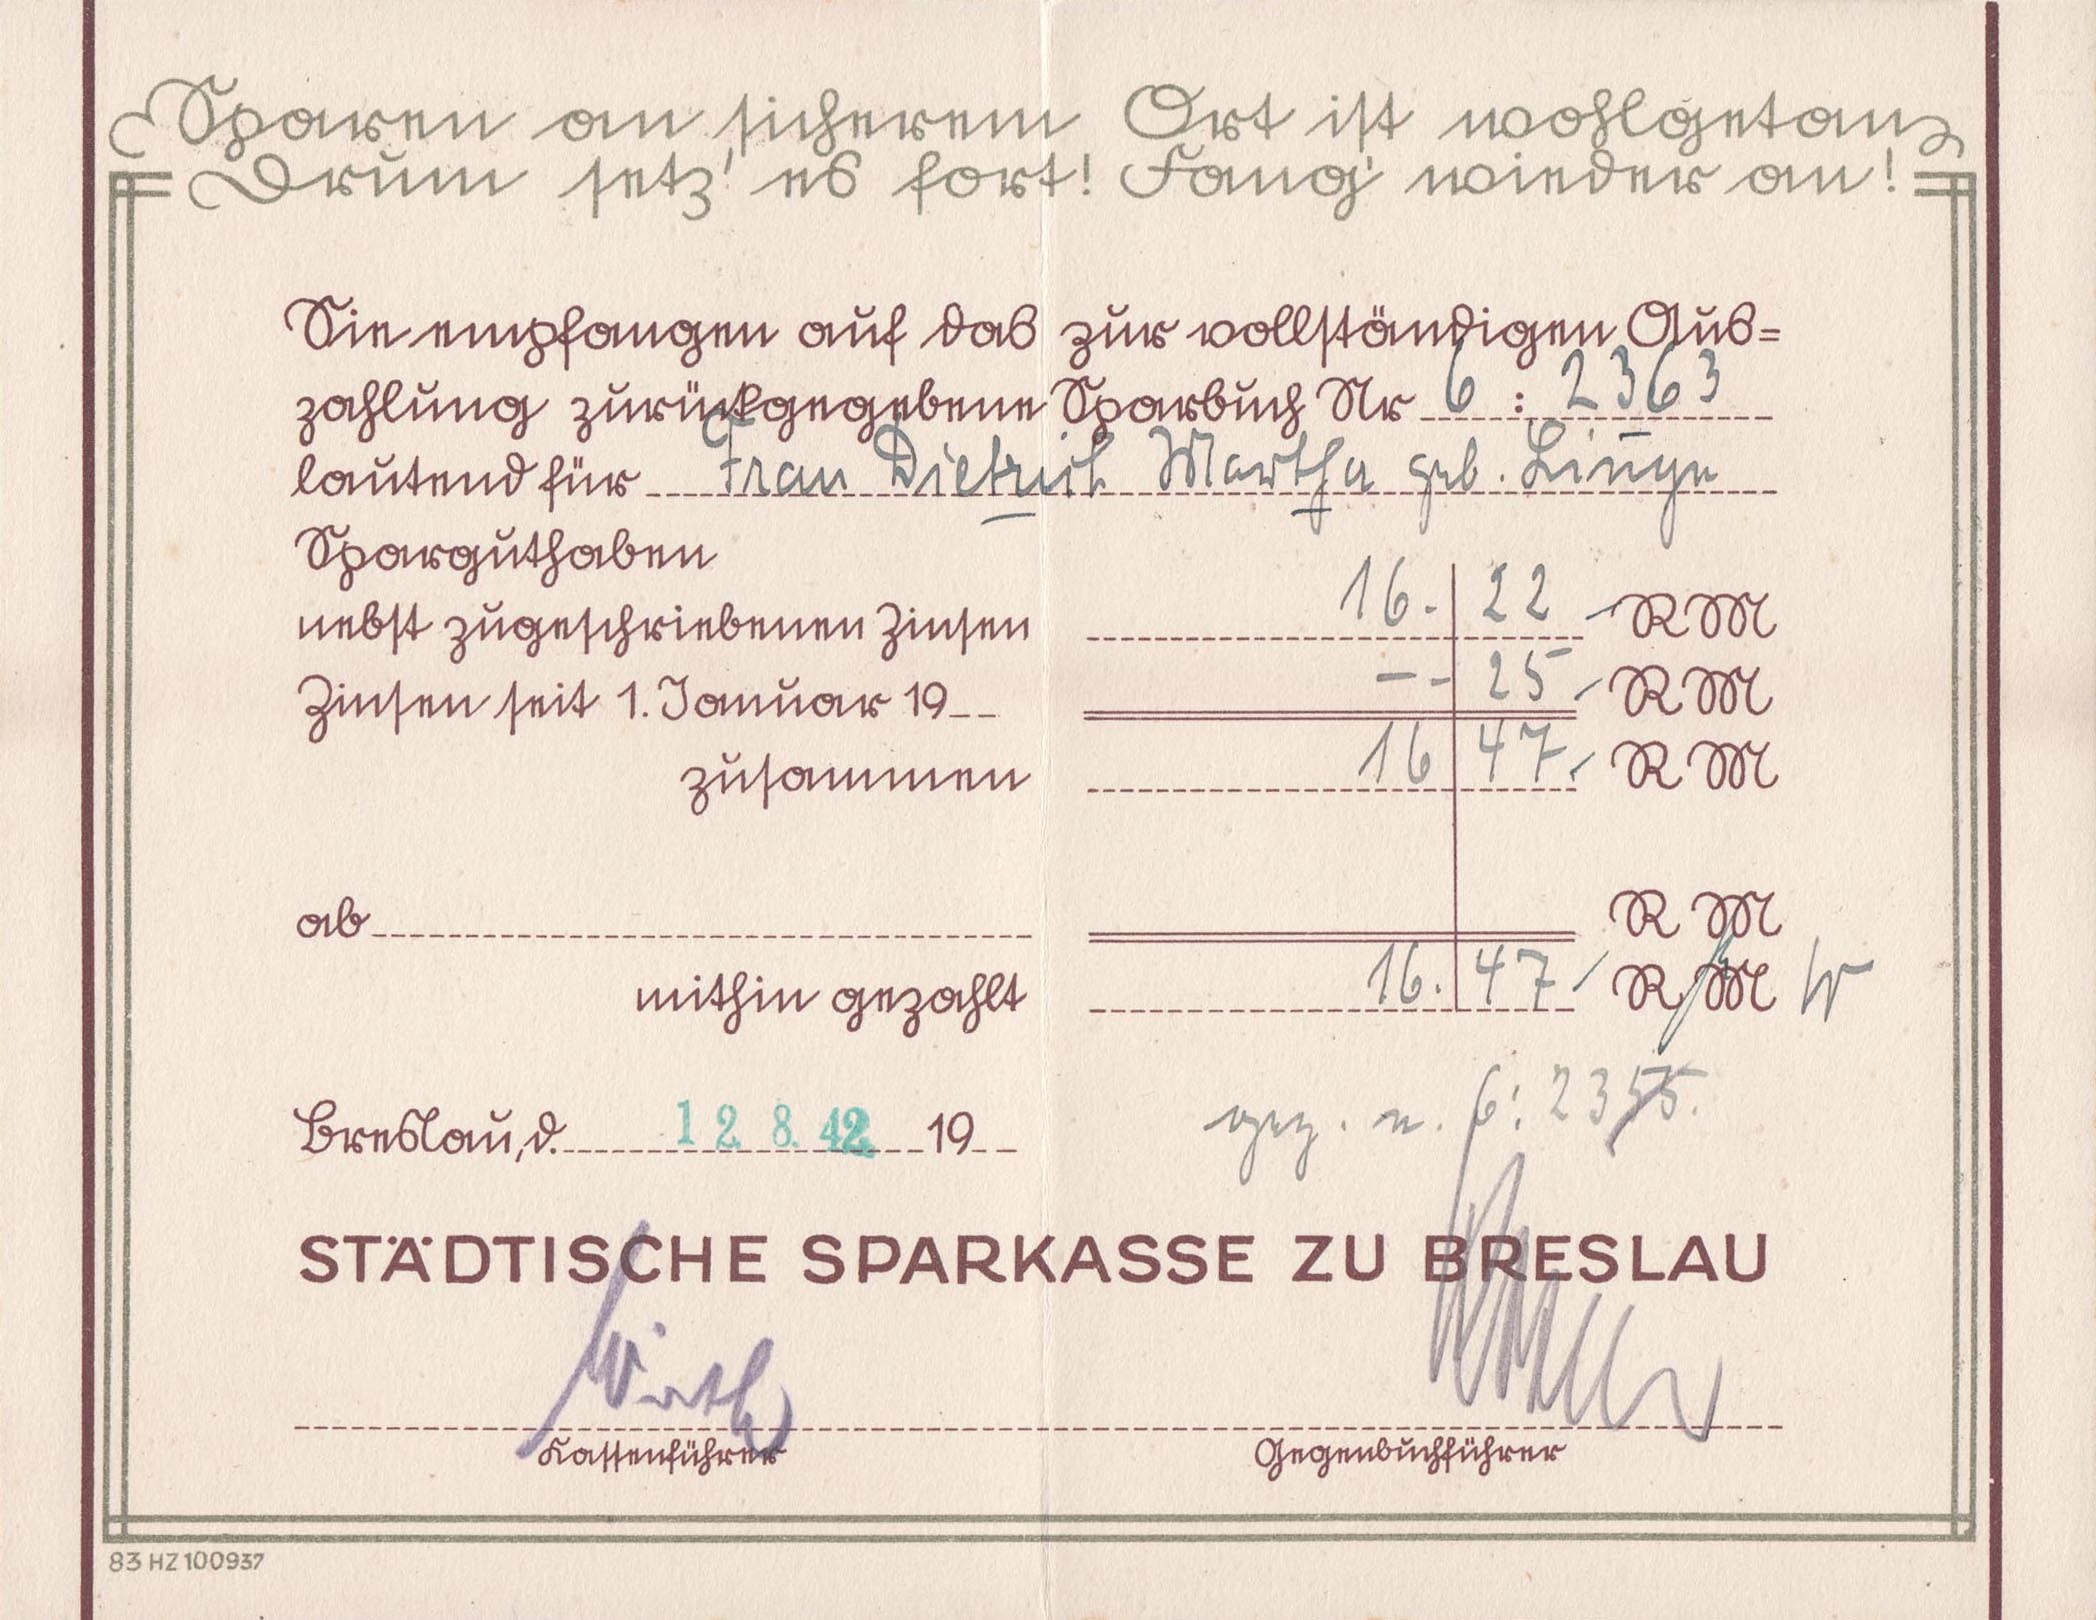 Sparen an sicherem Ort ist wohlgetan
Drum setz' es fort! Fang' wieder an!
Sie empfangen auf das zur vollständigen Aus=
zahlung zurückgegebene Sparbuch Nr 6 : 2363
lautend für Frau Dietrich Martha geb. Linge
Sparguthaben
nebst zugeschriebenen Zinsen 16.- 22 RM
Zinsen seit 1. Januar 19 -- 25 RM
zusammen 16 47 RM
ab RM
mithin gezahlt 16. 47 RM
gez. n. 6: 2355.
Breslau, d. 12. 8. 42 19
STÄDTISCHE SPARKASSE ZU BRESLAU
Wirth
Kassenführer Gegenbuchführer
83 HZ 100937